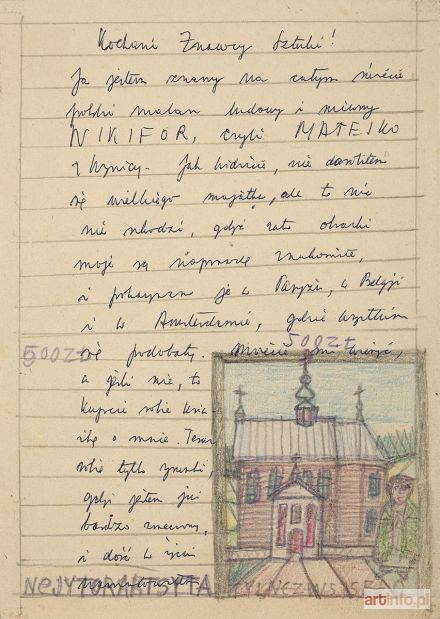 Kochani Znawcy Sztuki!
Ja jestem znany na całym świecie
polski malarz ludowy i niemy
NIKIFOR, czyli MATEJKO
z Krynicy. Jak widzicie, nie dorobiłem
się wielkiego majątku, ale to nic
nie szkodzi, gdyż za to obrazki
moje są naprawdę znakomite,
i pokazują je w Paryżu, w Belgji
i w Amsterdamie, gdzie wszystkim
500ZŁ
500Zł
się podobały. mi wierzyć,
a jeśli nie, to
kupcie sobie
o mnie. Teraz
robię tylko
gdyż jestem już
bardzo zmęczony,
i dość w życiu
artinfo.pl